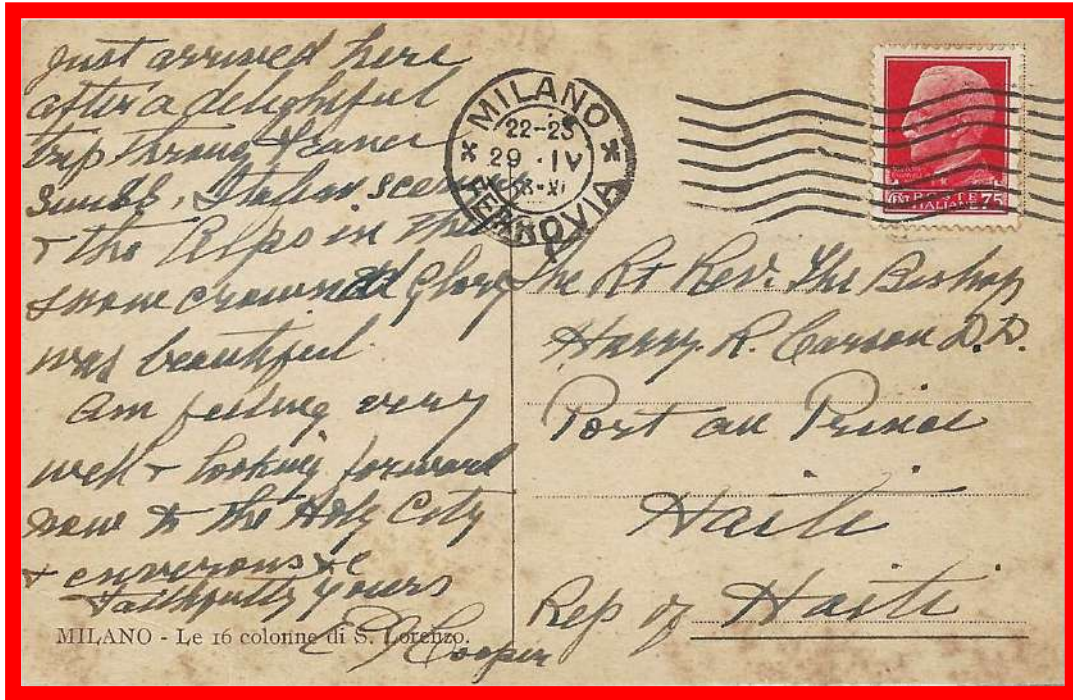 Just arrived here
after a delightful
trip through France
Italian scenery
+ the Alps in their
snow crowned glory
was beautiful.
Am feeling very
well + looking forward
now to the Holy City
+ environs &c
Faithfully yours
E Cooper
MILANO - Le 16 colonne di S. Lorenzo.
* MILANO *
22-23
29 · IV
FERROVIA
POSTE
ITALIANE 75
The Rt Rev. The Bishop
Harry R. Carson D.D.
Port au Prince
Haiti
Rep of Haiti